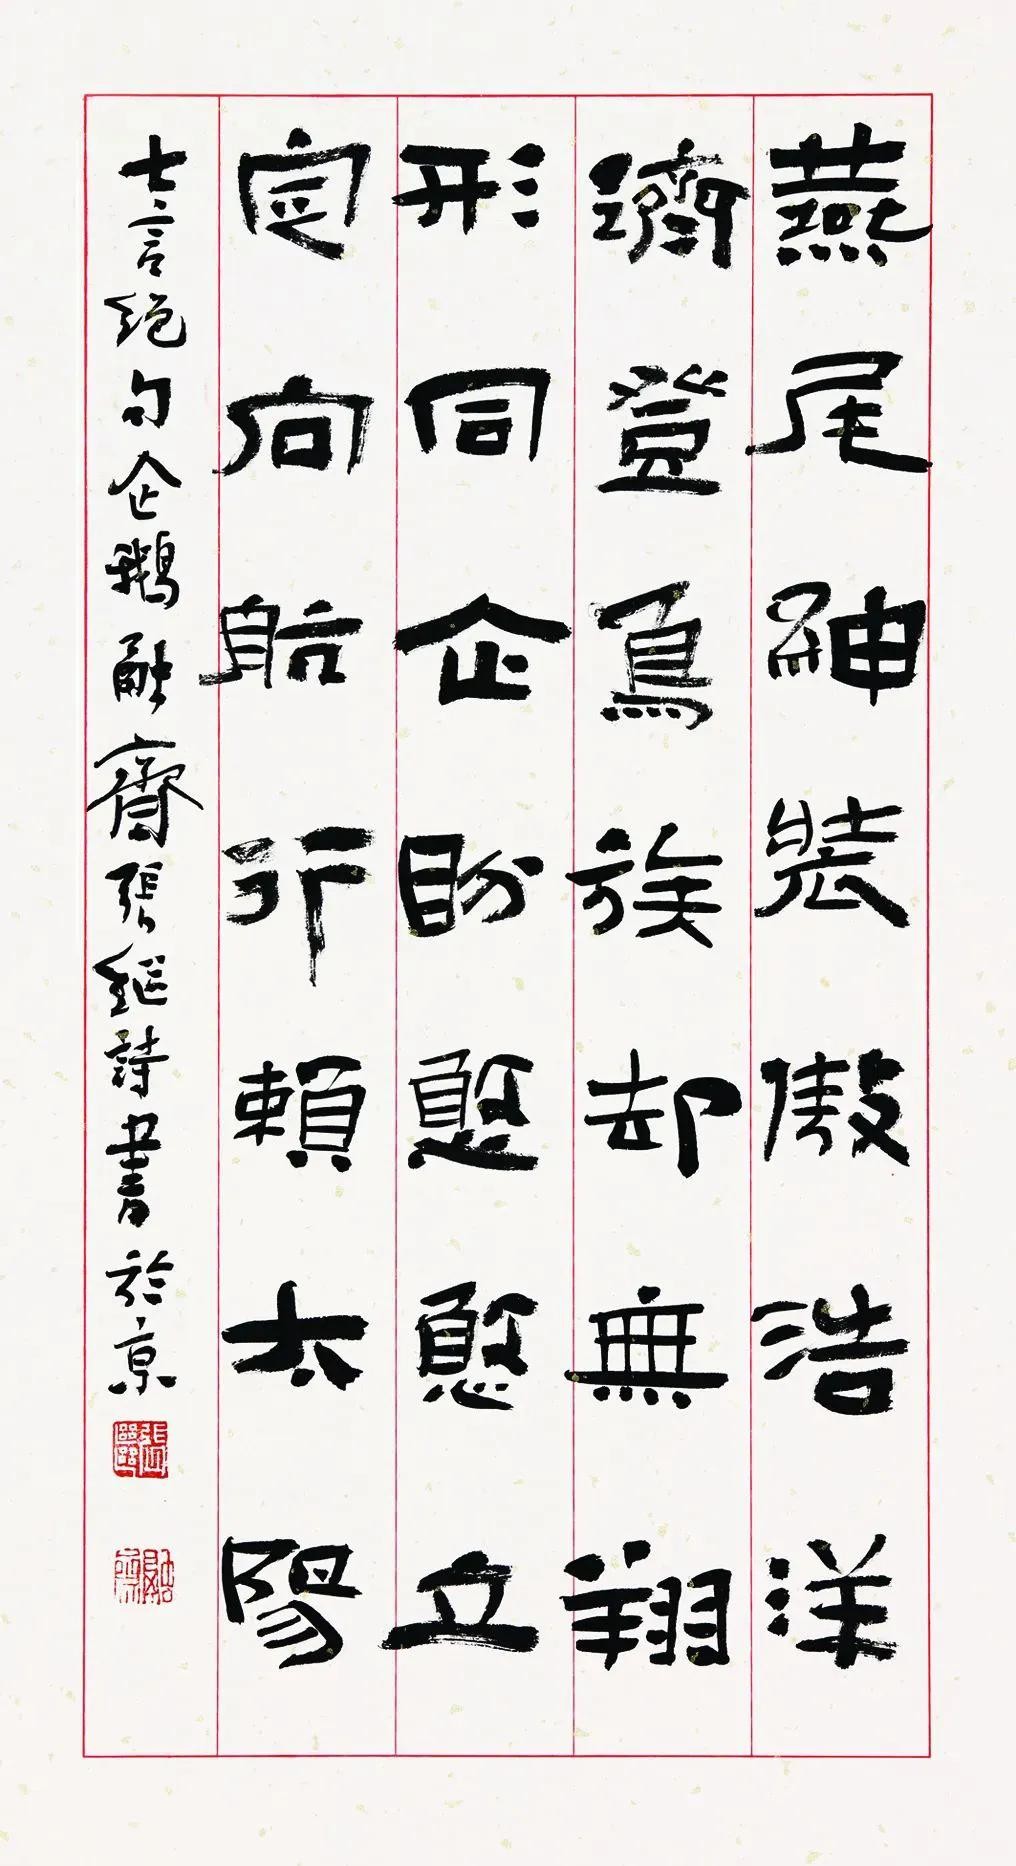 燕尾紳裝傲浩洋
躋登鳥族却無翔
形同企盼憨憨立
定向航行賴太陽
七言絕句企鵝融齋張繼詩書於京
張繼
融齋